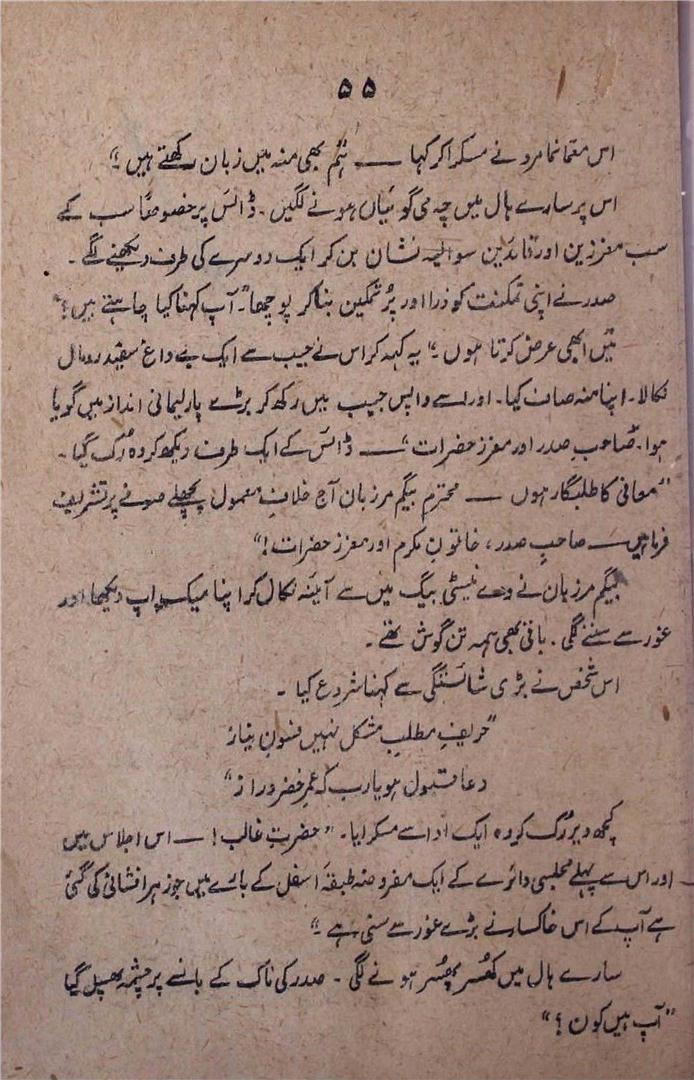 ۵۵
اس معمّا نما مرد نے مسکرا کر کہا ــــ ہم بھی منہ میں زبان رکھتے ہیں ؟“
اس پر سارے ہال میں چہ می گوئیاں ہونے لگیں۔ ڈائس پر خصوصاً سب کے
سب معززین اور قائدین سوالیہ نشان بن کر ایک دوسرے کی طرف دیکھنے لگے۔
صدر نے اپنی تمکنت کو ذرا اور پُرتمکین بنا کر پوچھا ”آپ کہنا کیا چاہتے ہیں؟“
میں ابھی عرض کرتا ہوں۔“ یہ کہہ کر اس نے جیب سے ایک بے داغ سفید رومال
نکالا۔ اپنا منہ صاف کیا۔ اور اسے واپس جیب میں رکھ کر بڑے پارلیمانی انداز میں گویا
ہوا۔ صاحبِ صدر اور معزز حضرات“ ــــ ڈائس کے ایک طرف دیکھ کر وہ رُک گیا۔
”معافی کا طلبگار ہوں ــــ محترم بیگم مرزبان آج خلافِ معمول پچھلے صوفے پر تشریف
فرما ہیں ــــ صاحبِ صدر، خاتونِ مکرم اور معزز حضرات!“
بیگم مرزبان نے وے نیٹی بیگ میں سے آئینہ نکال کر اپنا میک اپ دیکھا اور
غور سے سننے لگی۔ باقی بھی ہمہ تن گوش تھے۔
اس شخص نے بڑی شائستگی سے کہنا شروع کیا۔
”حریفِ مطلبِ مشکل نہیں فسونِ نیاز
دعا قبول ہو یارب کہ عمرِ خضر دراز“
کچھ دیر رُک کر وہ ایک ادا سے مسکرایا۔ ”حضرتِ غالب! ــــ اس اجلاس میں
اور اس سے پہلے مجلسی دائرے کے ایک مفروضہ طبقۂ اسفل کے بارے میں جو زہر افشانی کی گئی
ہے آپ کے اس خاکسار نے بڑے غور سے سنی ہے۔“
سارے ہال میں کھُسر پھُسر ہونے لگی۔ صدر کی ناک کے بانسے پر چشمہ پھسل گیا
”آپ ہیں کون؟“